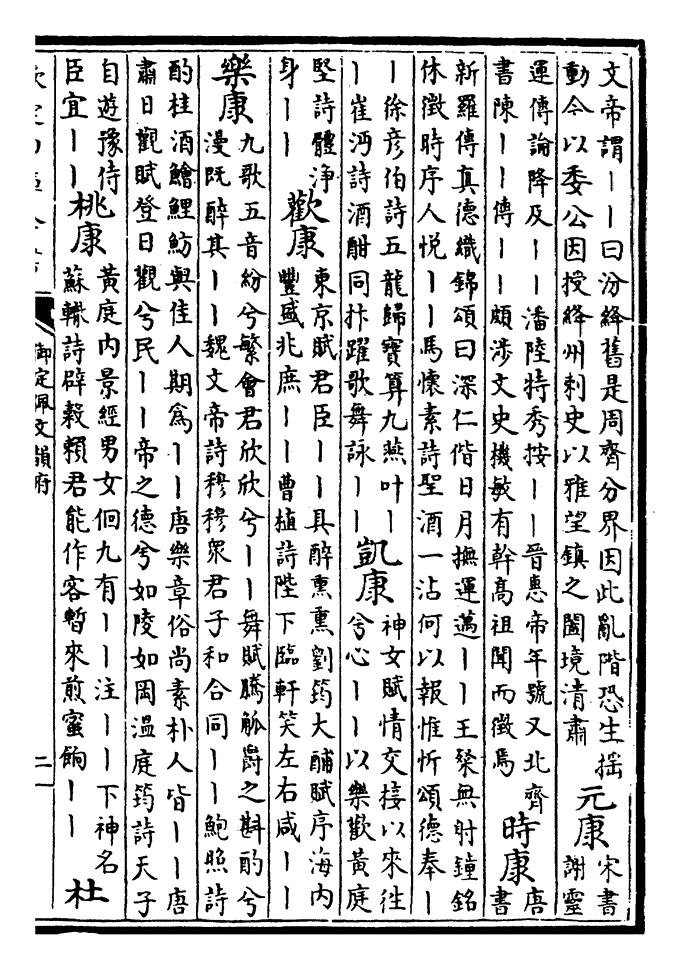 文帝謂丨丨曰汾絳舊是周齊分界因此亂階恐生揺
動今以委公因授絳州刺史以雅望鎮之闔境清肅
元康
宋書謝靈
運傳論降及丨丨潘陸特秀按丨丨晉惠帝年號又北齊
書陳丨丨傳丨丨頗涉文史機敏有幹高祖聞而徵焉
時康
唐書
新羅傳真德織錦頌曰深仁偕日月撫運邁丨丨王粲無射鐘銘
休徵時序人悦丨丨馬懷素詩聖酒一沾何以報惟忻頌德奉丨
丨徐彦伯詩五龍歸寶算九燕叶丨
丨崔沔詩酒酣同抃躍歌舞詠丨丨
凱康
神女賦情交接以來往
兮心丨丨以樂歡黃庭
堅詩體浄
身丨丨
歡康
東京賦君臣丨丨具醉熏熏劉筠大酺賦序海内
豐盛兆庶丨丨曹植詩陛下臨軒笑左右咸丨丨
樂康
九歌五音紛兮繁會君欣欣兮丨丨舞賦騰觚爵之斟酌兮
漫既醉其丨丨魏文帝詩穆穆衆君子和合同丨丨鮑照詩
酌桂酒鱠鯉魴與佳人期為丨丨唐樂章俗尚素朴人皆丨丨唐
肅日觀賦登日觀兮民丨丨帝之德兮如陵如岡温庭筠詩天子
自遊豫侍
臣宜丨丨
桃康
黃庭内景經男女佪九有丨丨注丨丨下神名
蘇轍詩辟穀賴君能作客暫來煎蜜餉丨丨
杜
御定佩文韻府
二